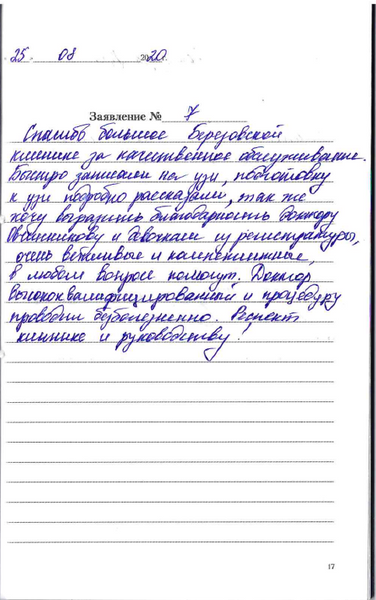 25 08 2020
Заявление № 7
Спасибо большое Березовской
клинике за качественное обслуживание.
Быстро записали на узи, подготовку
к узи подробно рассказали, так же
хочу выразить благодарность доктору
Овчинникову и девочкам из регистратуры,
очень вежливые и компетентные,
в любом вопросе помогут. Доктор
высококвалифицированный и процедуру
проводил безболезненно. Респект
клинике и руководству!
17